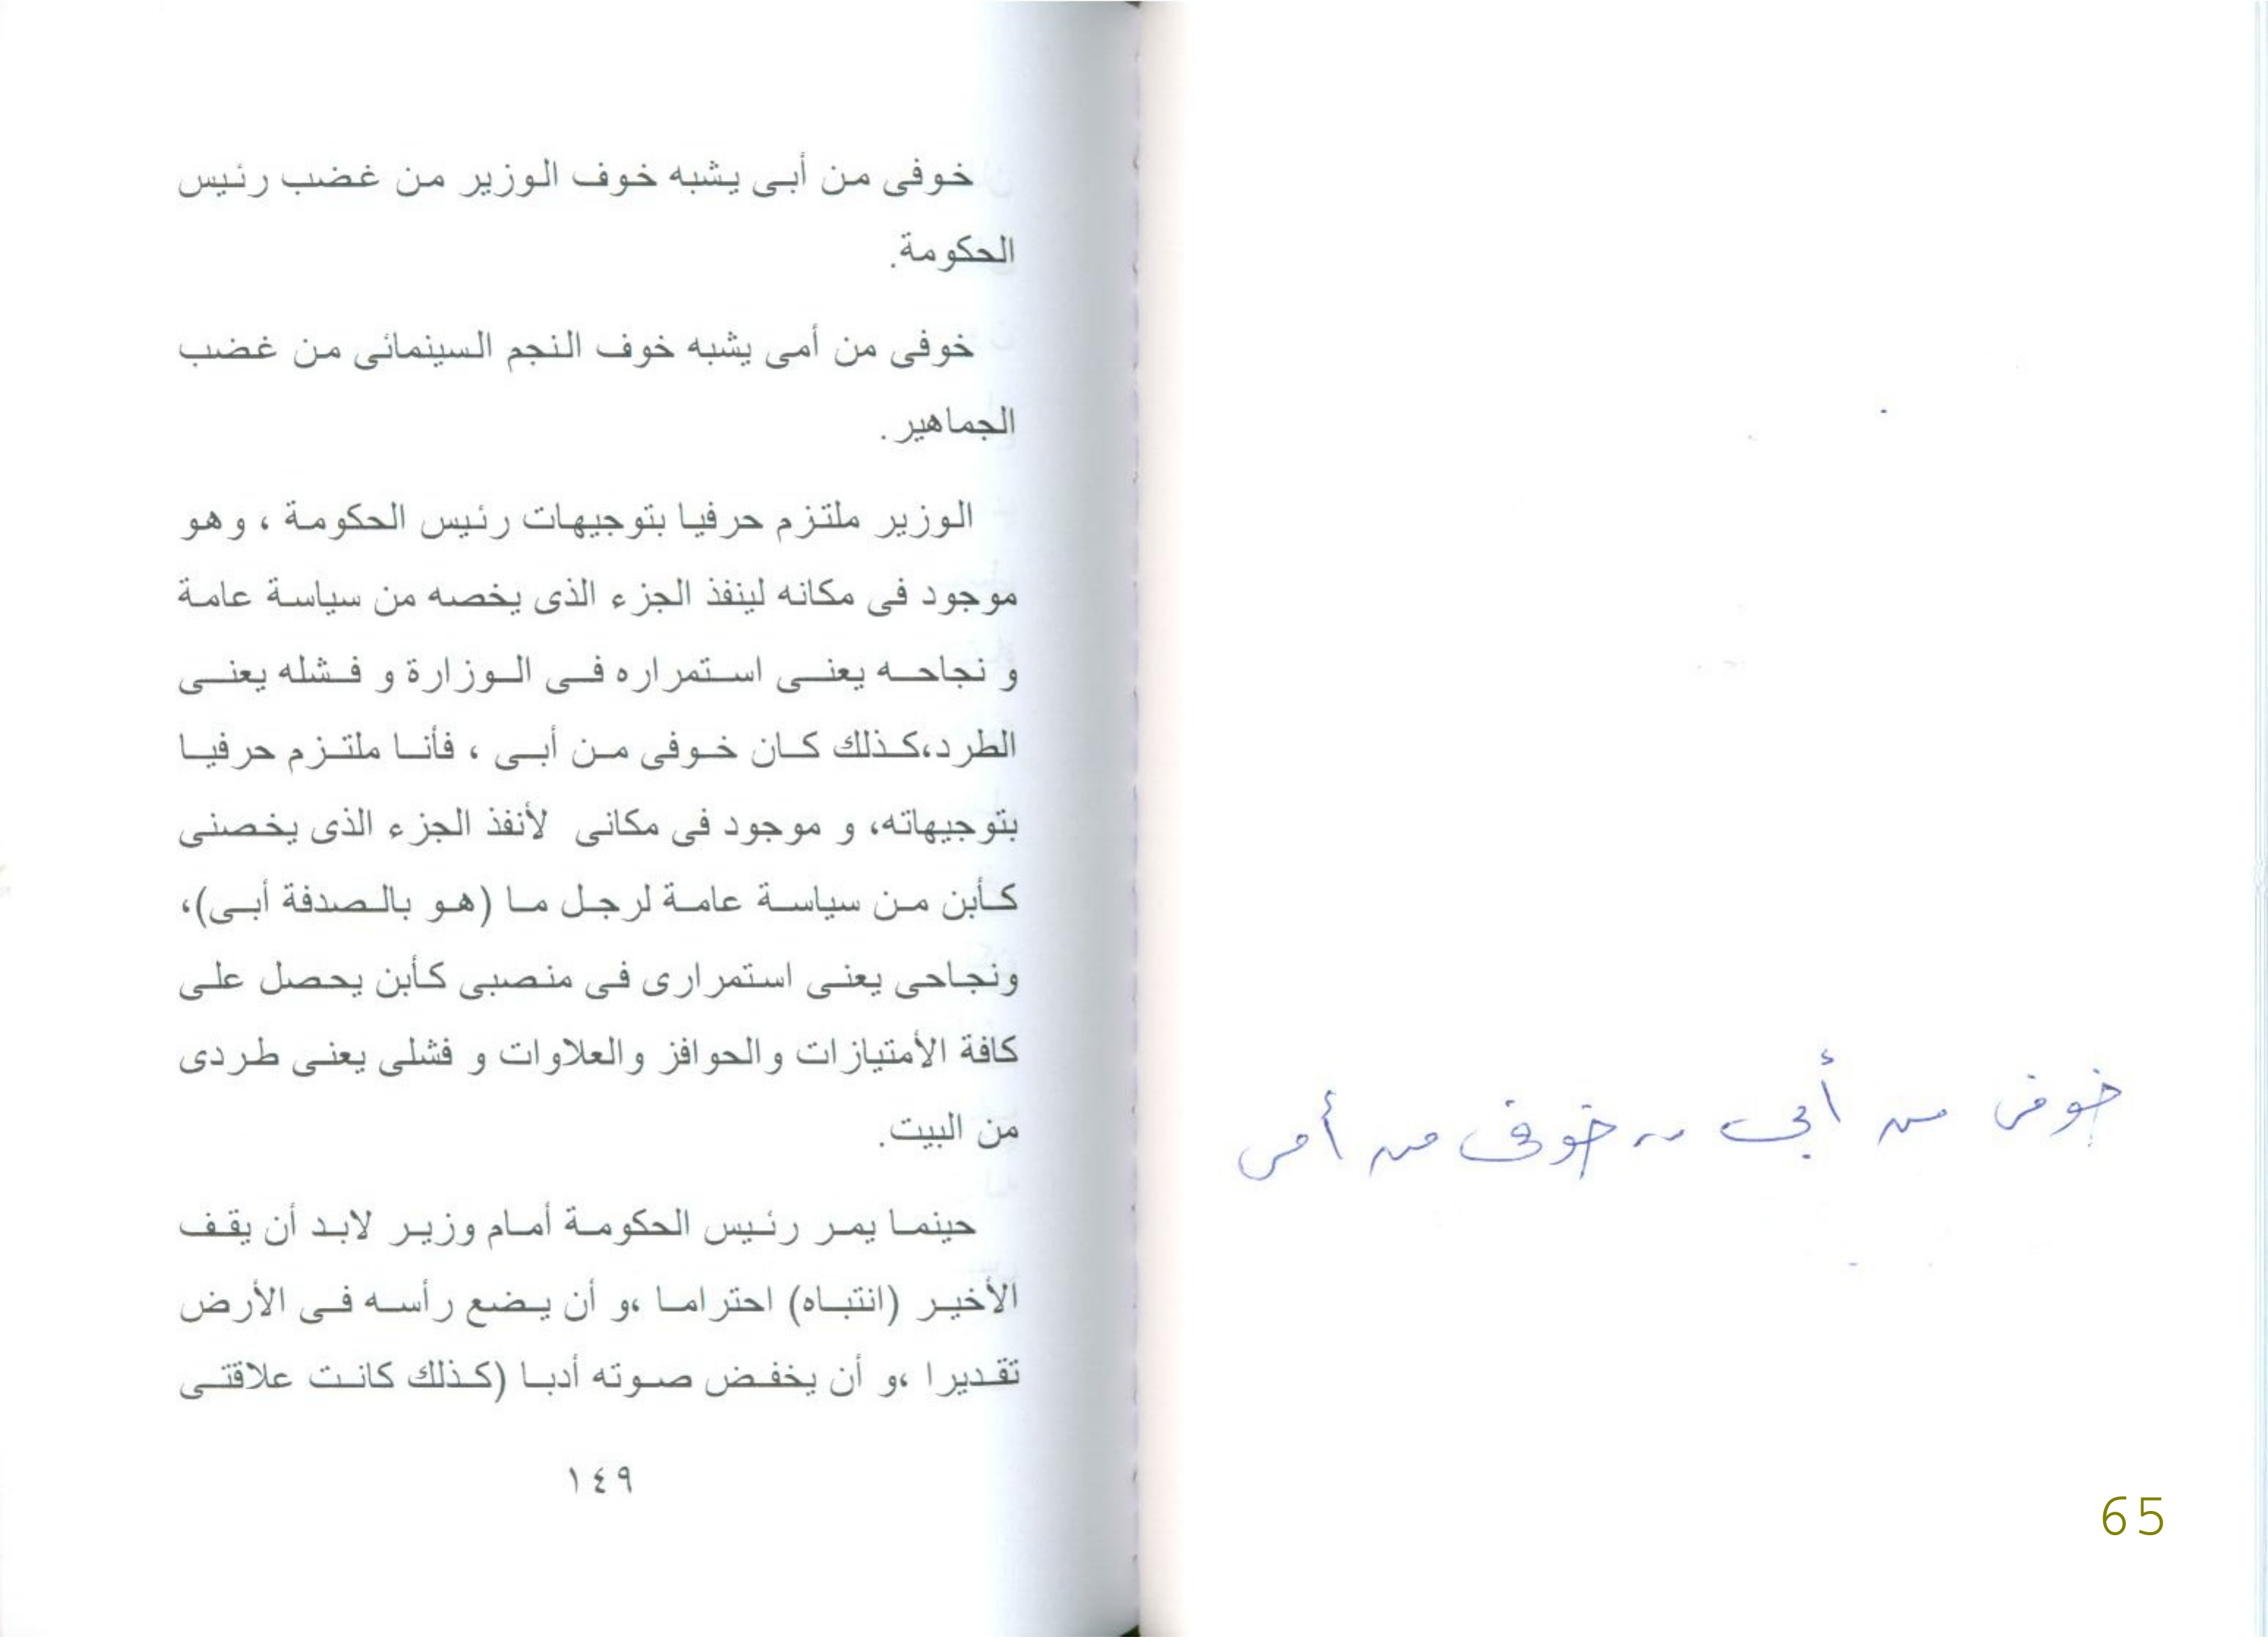 خوفى من أبى يشبه خوف الوزير من غضب رئيس
الحكومة.
خوفى من أمى يشبه خوف النجم السينمائى من غضب
الجماهير .
الوزير ملتزم حرفيا بتوجيهات رئيس الحكومة ، وهو
موجود فى مكانه لينفذ الجزء الذى يخصه من سياسة عامة
و نجاحه يعنى استمراره فى الوزارة و فشله يعنى
الطرد،كذلك كان خوفى من أبى ، فأنا ملتزم حرفيا
بتوجيهاته، و موجود فى مكانى لأنفذ الجزء الذى يخصنى
كأبن من سياسة عامة لرجل ما (هو بالصدفة أبى)،
ونجاحى يعنى استمرارى فى منصبى كأبن يحصل على
كافة الأمتيازات والحوافز والعلاوات و فشلى يعنى طردى
من البيت.
حينما يمر رئيس الحكومة أمام وزير لابد أن يقف
الأخير (انتباه) احتراما ،و أن يضع رأسه فى الأرض
تقديرا ،و أن يخفض صوته أدبا (كذلك كانت علاقتى
١٤٩
خوفى من أبى ~ خوفى من أمى
65